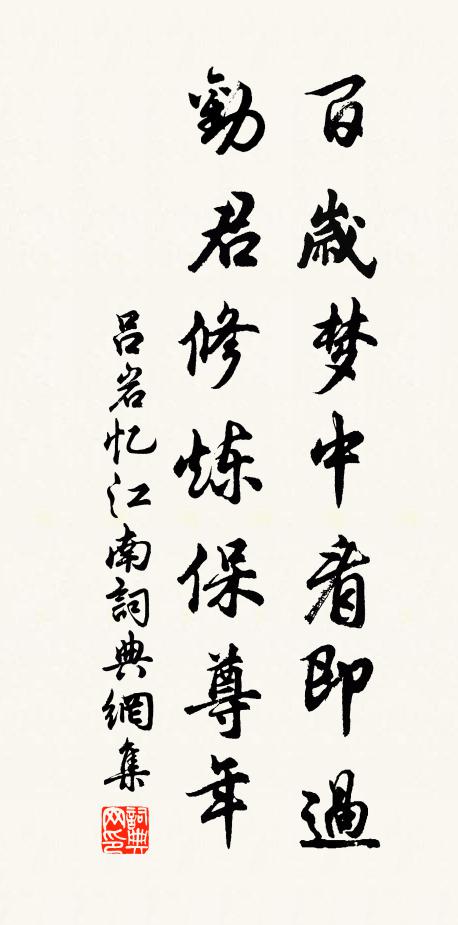 百歲梦中看即過
勸君修炼保尊年
吕岩忆江南詞典網集
詞典网印